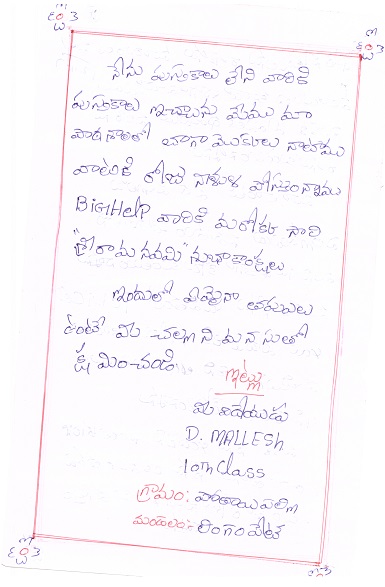 శ్రీ
శ్రీ
నేను పుస్తకాలు లేని వారికి
పుస్తకాలు ఇచ్చాను మేము మా
పాఠశాలలో బాగా మొక్కలు నాటాము
వాటికి రోజు నీళ్ళు పోస్తున్నాము
BIG HELP వారికి మరోకసారి
"శ్రీరామనవమి" శుభాకాంక్షలు
ఇందులో ఏమైనా తప్పులు
ఉంటే మీ చల్లని మనసుతో
క్షమించండి
ఇట్లు
మీ విధేయుడు
D. MALLESH
10th Class
గ్రామం:
మండలం:- లింగంపేట